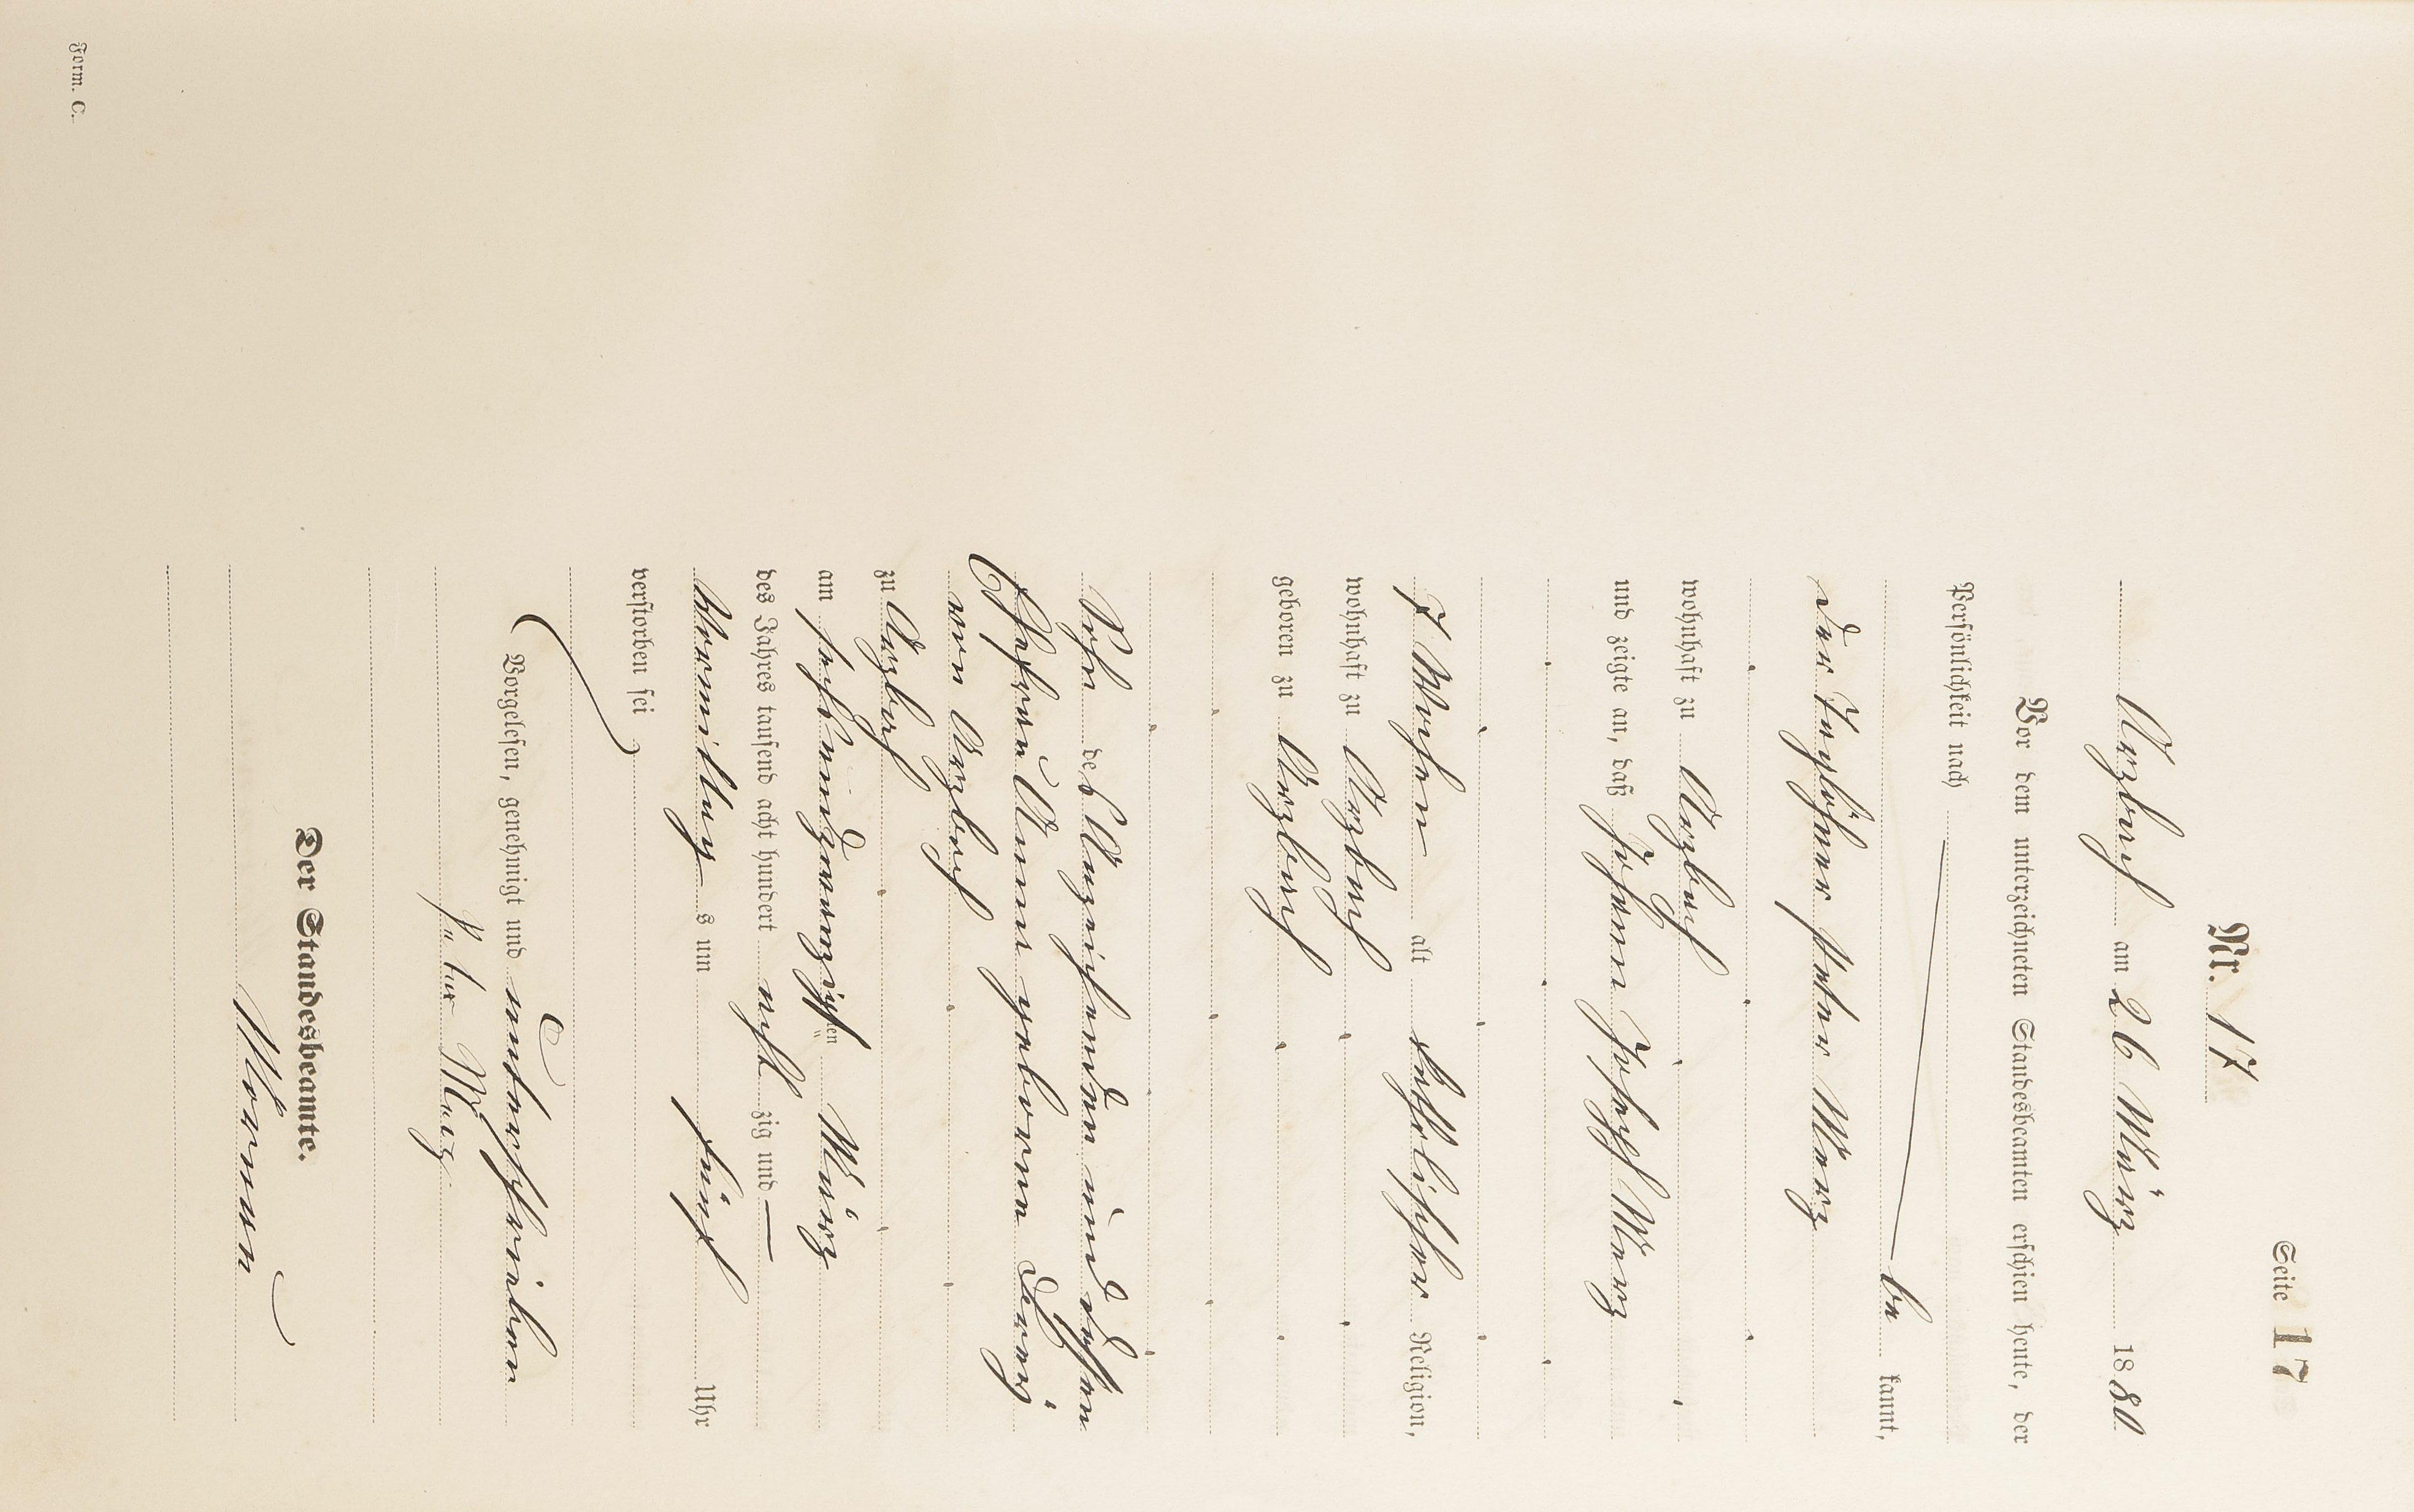 Seite 17
Nr. 17
Arzbach am 26 März 1880
Vor dem unterzeichneten Standesbeamten erschien heute, der
Persönlichkeit nach
be kannt,
der Taglöhner Peter Merz
wohnhaft zu Arzbach
und zeigte an, daß Johann Joseph Merz
7 Wochen alt katholischer Religion,
wohnhaft zu Arzbach
geboren zu Arzbach
Sohn des Anzeigenden und dessen
Ehefrau Anna geborene
von Arzbach
zu Arzbach
am sechsundzwanzigsten März
des Jahres tausend acht hundert acht zig und —
Vormittags um fünf Uhr
verstorben sei
Vorgelesen, genehmigt und unterschrieben
Peter Merz
Der Standesbeamte.
Form. C.